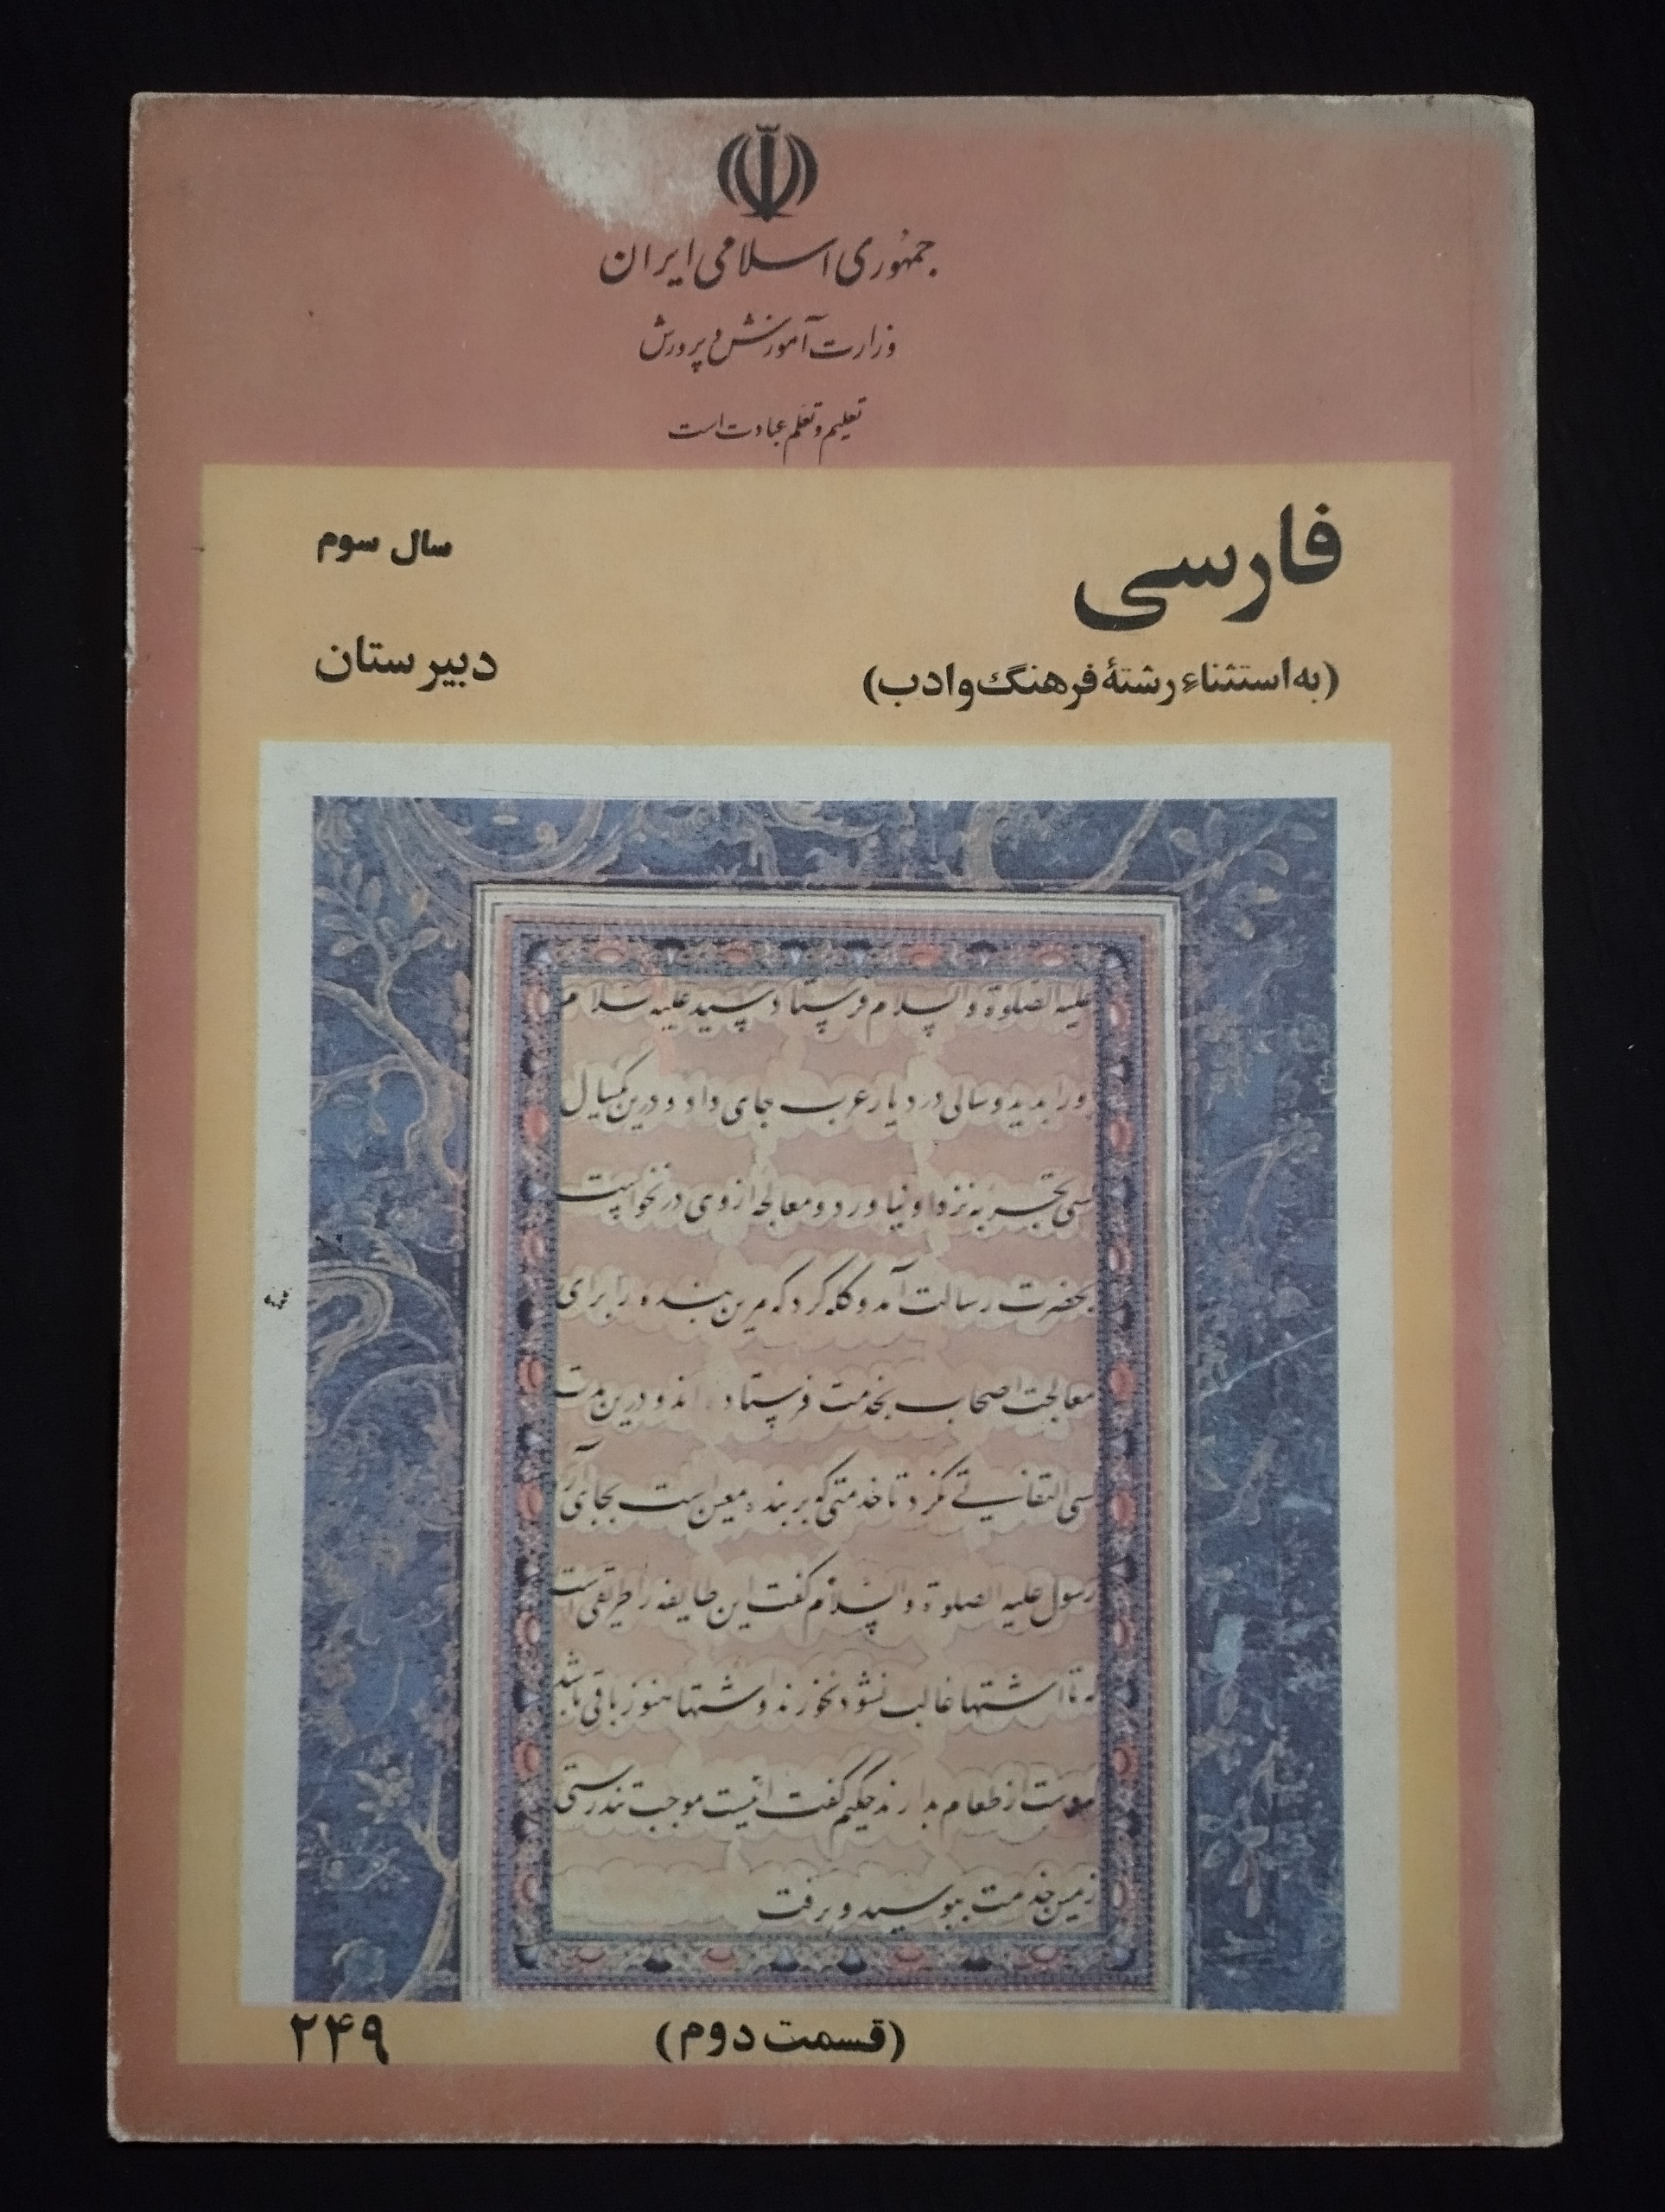 جمهوری اسلامی ایران
وزارت آموزش و پرورش
تعلیم و تعلم عبادت است
فارسی
سال سوم
(به استثناء رشتهٔ فرهنگ و ادب)
دبیرستان
علیه الصلوة و السلام فرستاد سید علیه سلام
ورا بدید و سالی در دیار عرب جای داد و درین یکسال
سی تجربه نزد او نیاورد و معالجه از وی در نخواست
بحضرت رسالت آمد و گله کرد که مرین بنده را برای
معالجت اصحاب بخدمت فرستاده اند و درین مدت
سی التفاتی نکرد تا خدمتی که بر بنده معین است بجای آرد
رسول علیه الصلوة و السلام گفت این طایفه را طریقی است
که تا اشتها غالب نشود نخورند و اشتها هنوز باقی باشد
دست از طعام بدارند حکیم گفت اینست موجب تندرستی
زمین خدمت ببوسید و برفت
(قسمت دوم)
۲۴۹